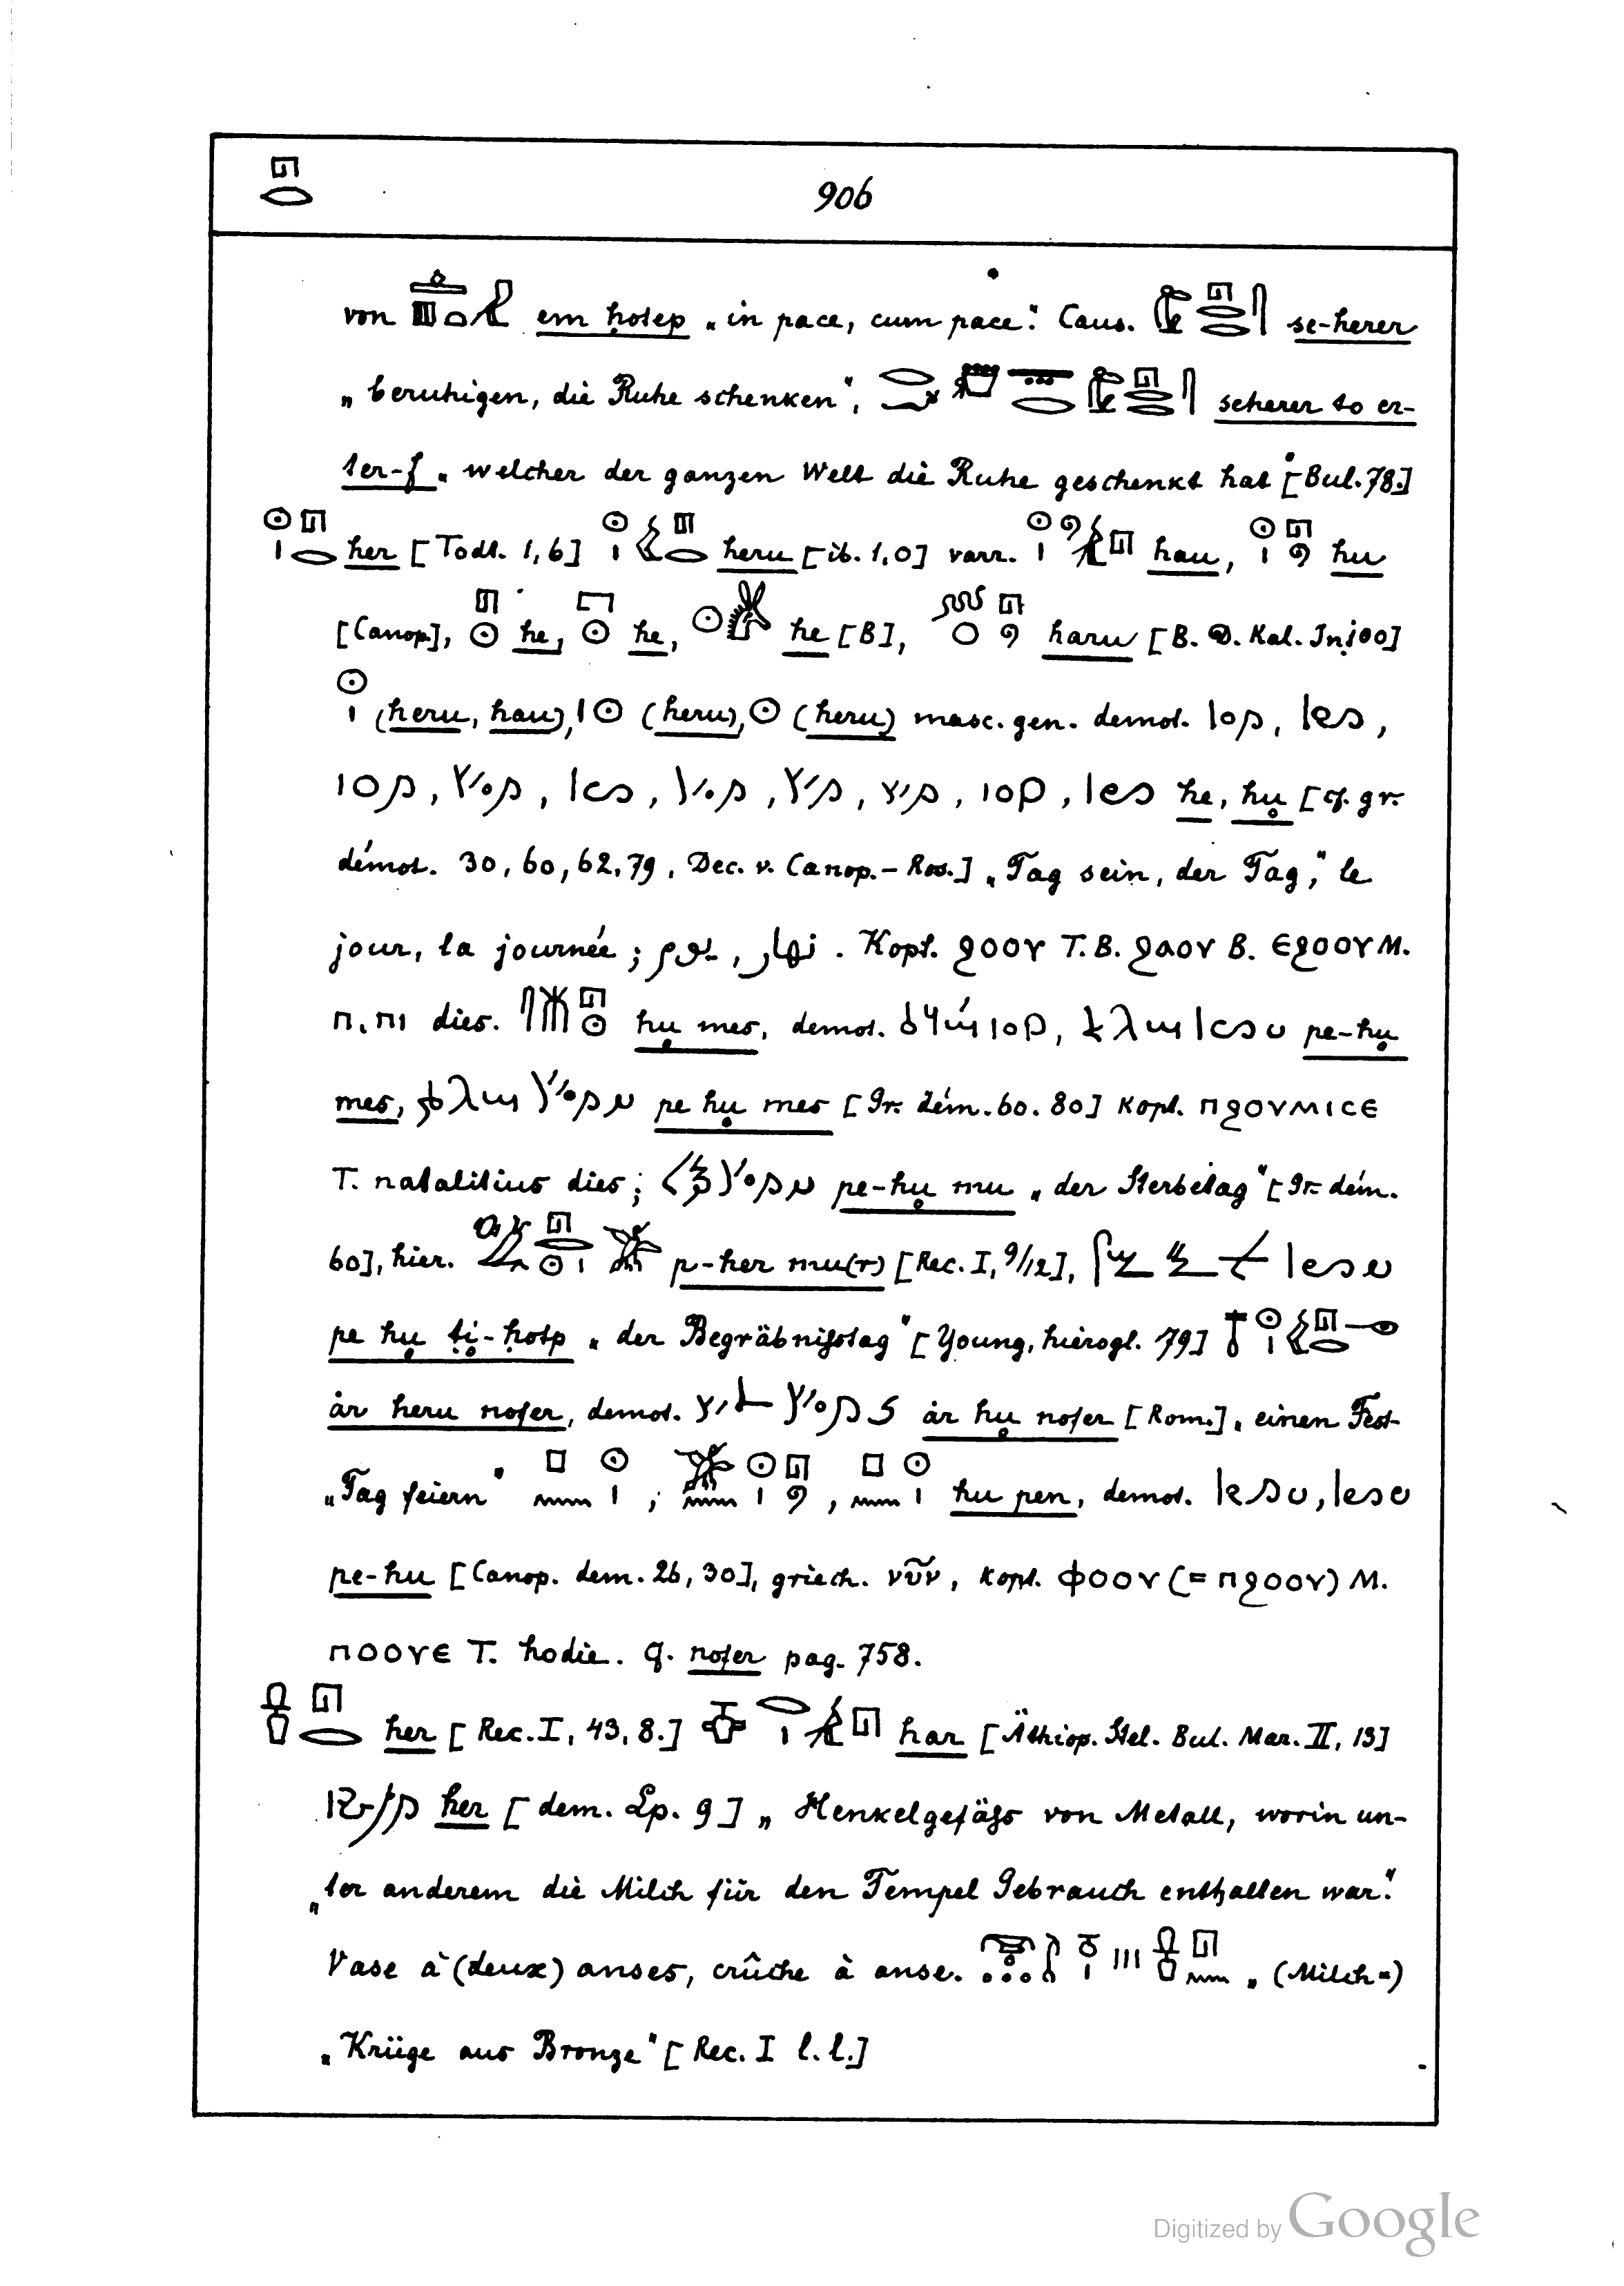 906
von em ḥotep „in pace, cum pace". Caus. se-herer
„beruhigen, die Ruhe schenken", seherer to er-
ter-f „welcher der ganzen Welt die Ruhe geschenkt hat [Bul. 78.]
her [Todt. 1,6] heru [ib. 1,0] varr. hau, hu
[Canop.], he, he, he [B], haru [B. D. Kal. In. 100]
(heru, hau), (heru), (heru) masc. gen. demot.
he, hu̥ [cf. gr.
démot. 30, 60, 62, 79, Dec. v. Canop. – Ros.] „Tag sein, der Tag," le
jour, la journée; نهار, يوم. Kopt. ϩⲟⲟⲩ T. B. ϩⲁⲟⲩ B. ⲉϩⲟⲟⲩ M.
ⲡ, ⲡⲓ dies. hu̥ mes, demot. pe-hu̥
mes, pe hu̥ mes [Gr. dém. 60. 80] Kopt. ⲡϩⲟⲩⲙⲓⲥⲉ
T. natalitius dies; pe-hu̥ mu „der Sterbetag" [Gr. dém.
60], hier. p-her mu(r) [Rec. I, 9/12],
pe hu̥ ṭi̥-ḥotp „der Begräbnißtag" [Young, hierogl. 79]
år heru nofer, demot. år hu̥ nofer [Rom.] „einen Fest-
„Tag feiern" ; , hu pen, demot.
pe-hu [Canop. dem. 26, 30], griech. νῦν, kopt. ⲫⲟⲟⲩ (= ⲡϩⲟⲟⲩ) M.
ⲡⲟⲟⲩⲉ T. hodie. cf. nofer pag. 758.
her [Rec. I, 43, 8.] har [Äthiop. Stel. Bul. Mar. II, 13]
her [dem. Lp. 9] „Henkelgefäß von Metall, worin un-
„ter anderem die Milch für den Tempel Gebrauch enthalten war."
Vase à (deux) anses, crûche à anse. „(Milch=)
„Krüge aus Bronze" [Rec. I l. l.]
Digitized by Google